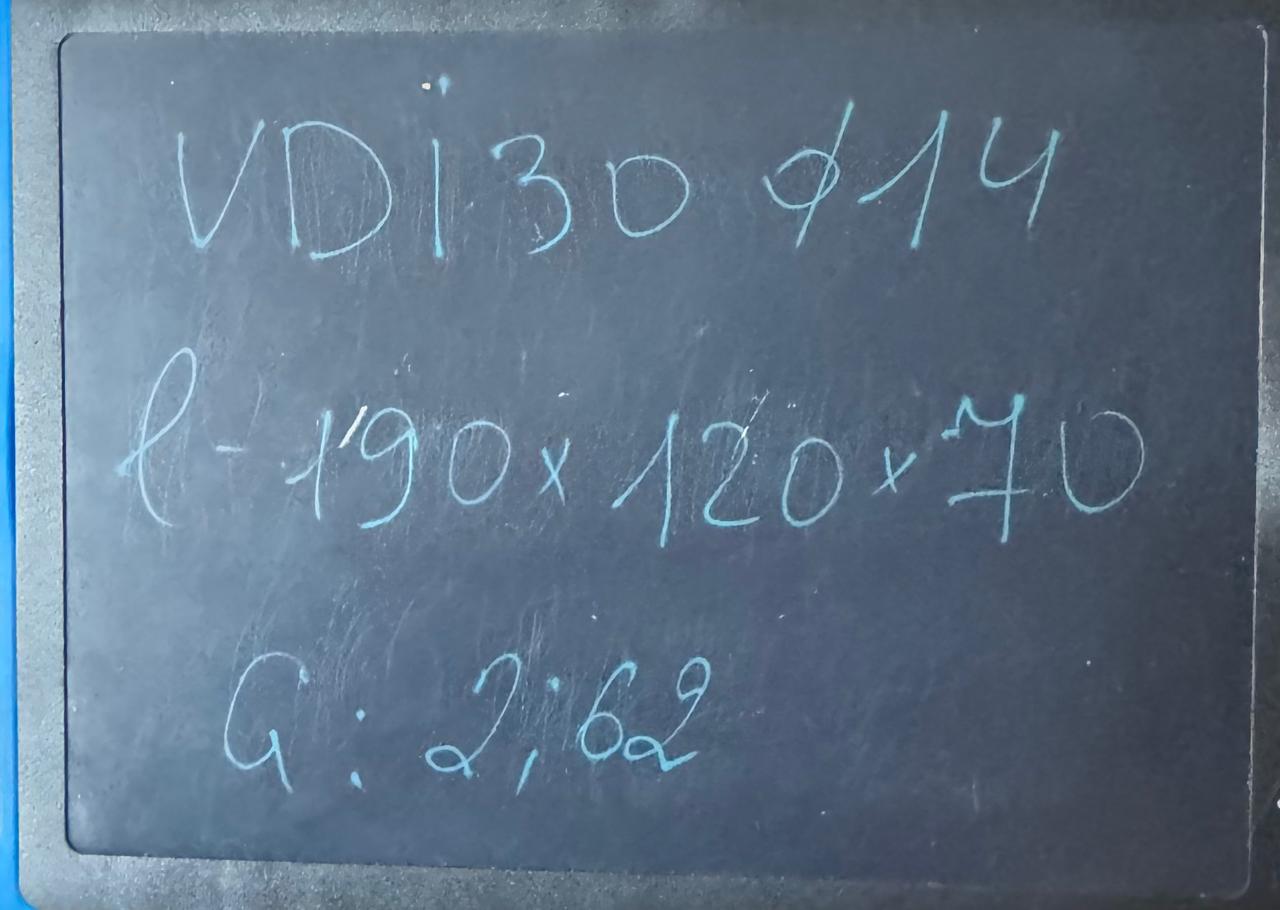 VDi30 ø14
l-190x120x70
G: 2;62